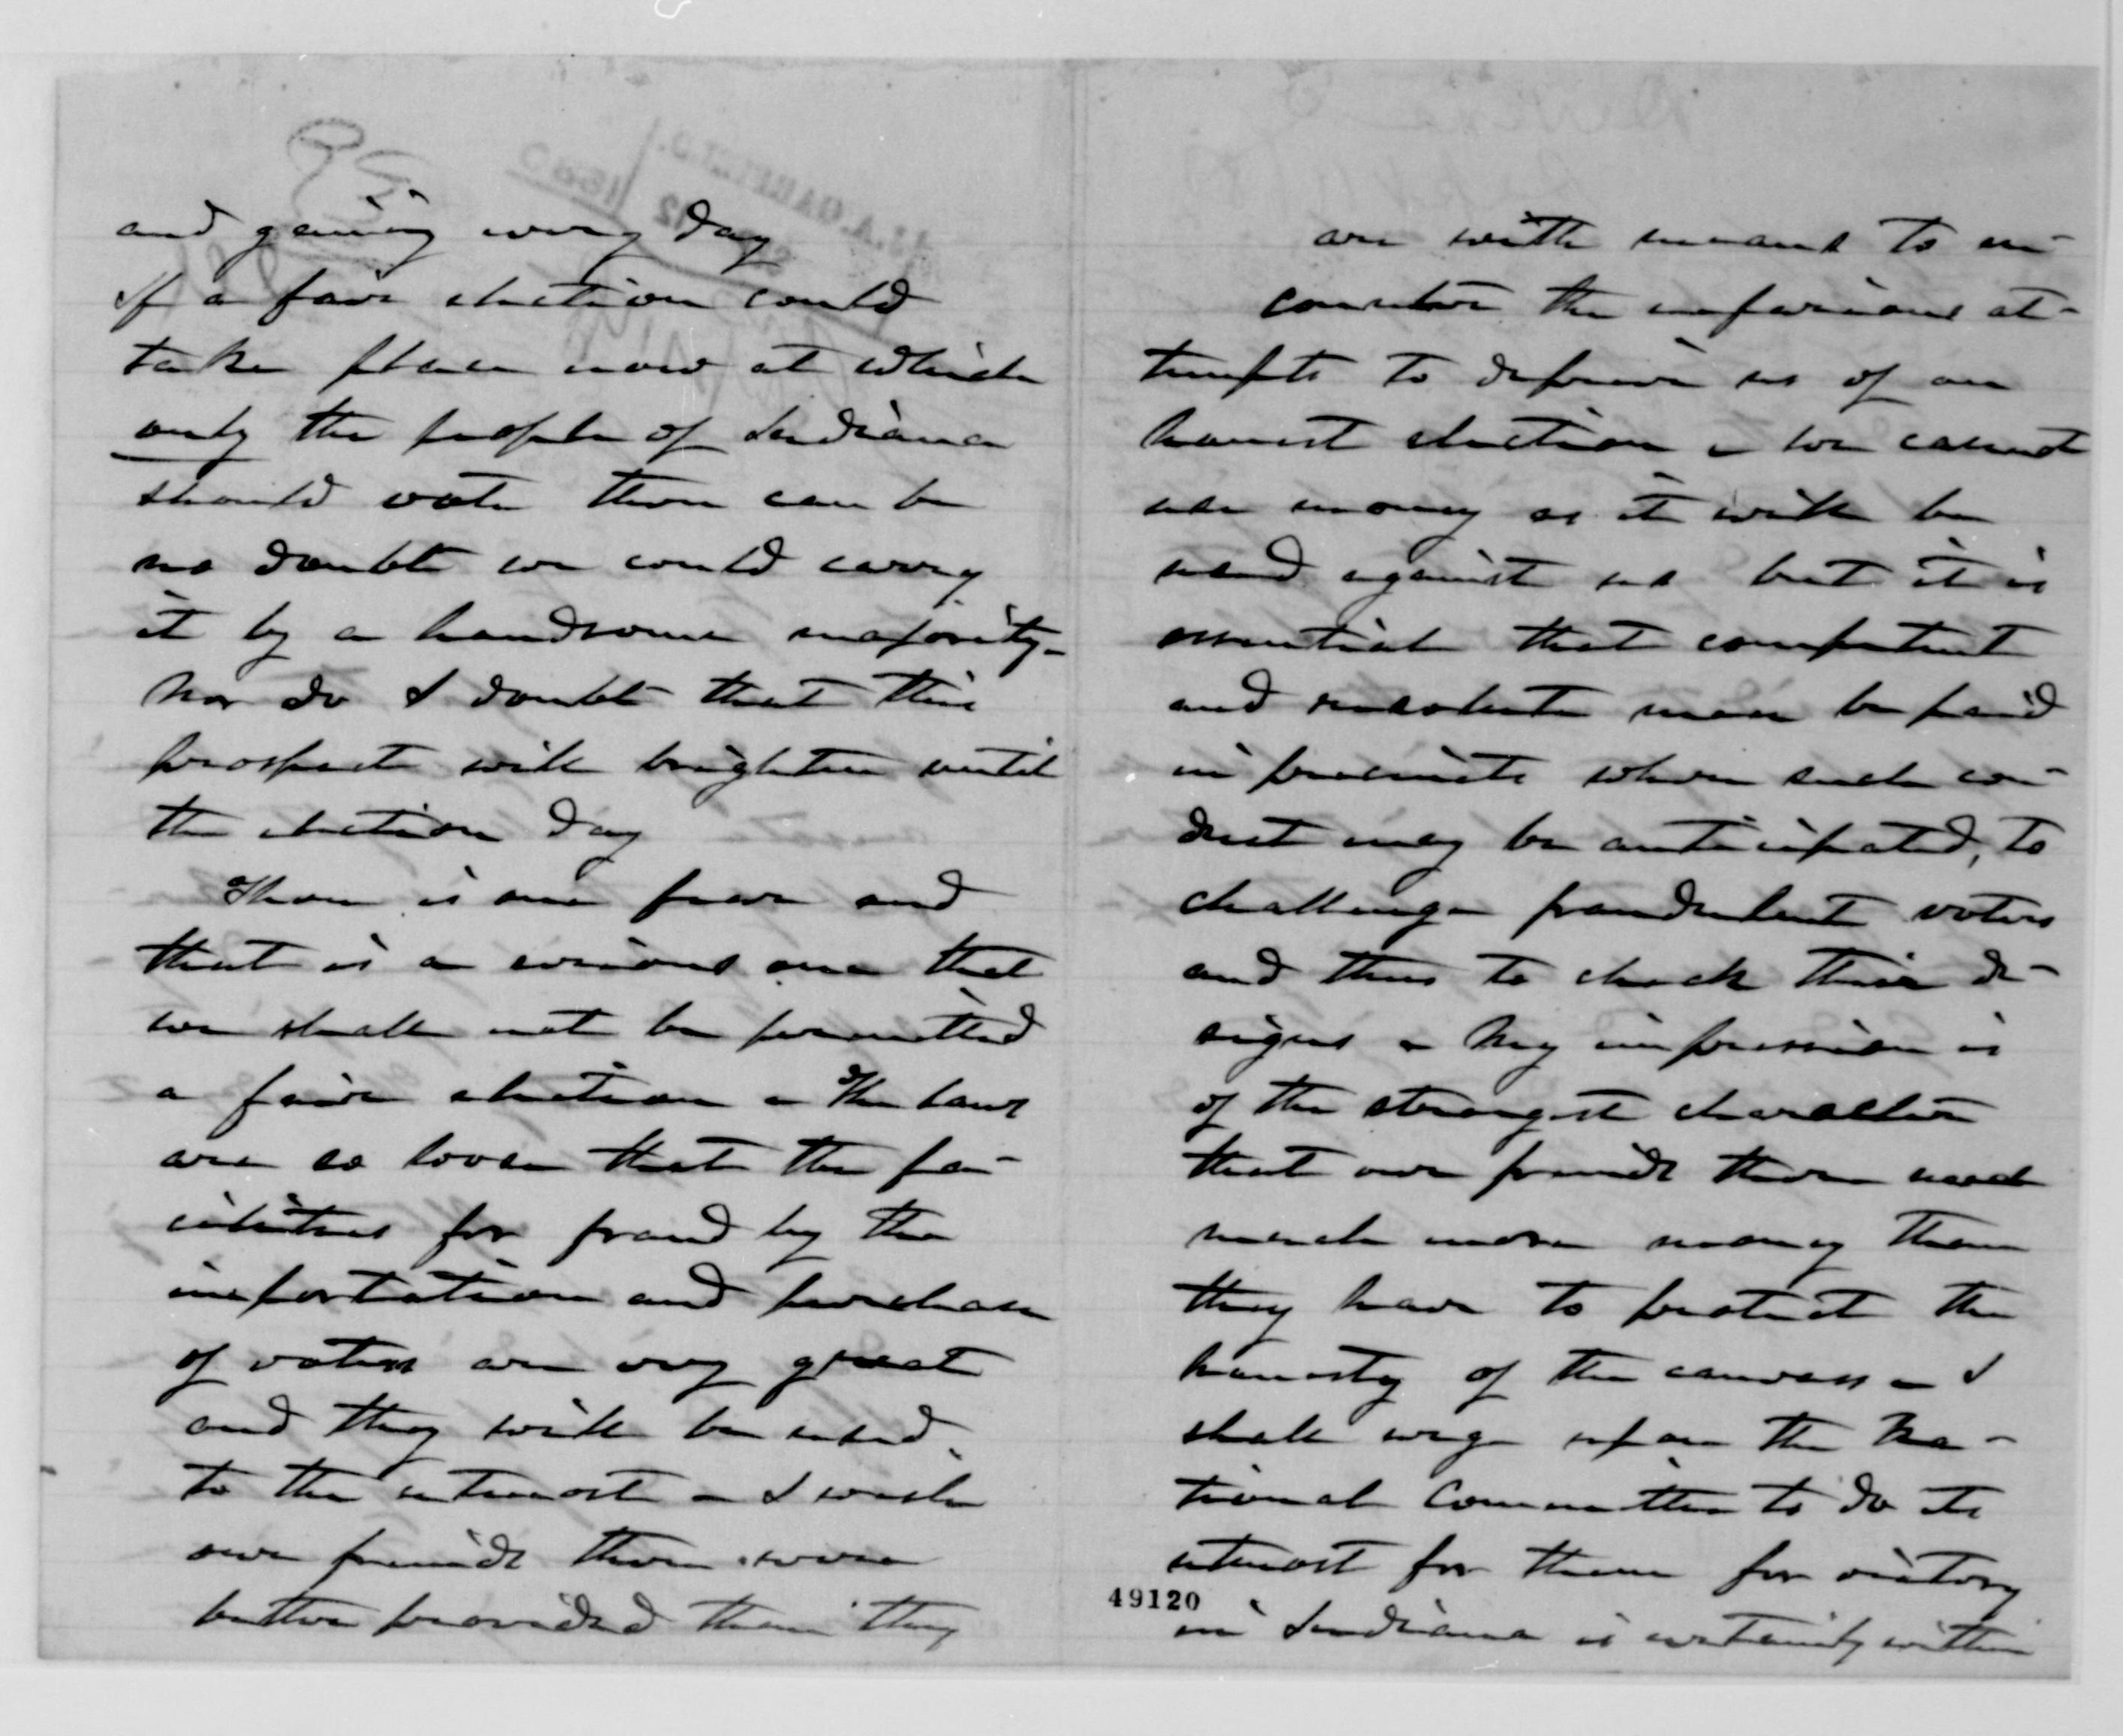 and gaining every day
If a fair election could
take place now at which
only the people of Indiana
should vote there can be
no doubt we could carry
it by a handsome majority -
Nor do I doubt that this
prospect will brighten until
the election day
There is one fear and
that is a serious one that
we shall not be permitted
a fair election - The laws
are so loose that the fa-
cilities for fraud by the
importation and purchase
of votes are very great
and they will be used
to the utmost - I wish
our friends there were
better provided than they
are with means to en-
counter the nefarious at-
tempts to deprive us of an
honest election - We cannot
use money as it will be
used against us but it is
essential that competent
and resolute men be paid
in precincts where such con-
duct may be anticipated, to
challenge fraudulent voters
and thus to check their de-
signs - My impression is
of the strongest character
that our friends there need
much more money than
they have to protect the
honesty of the canvass - I
shall urge upon the Na-
tional Committee to do its
utmost for them for victory
49120
in Indiana is certainly within